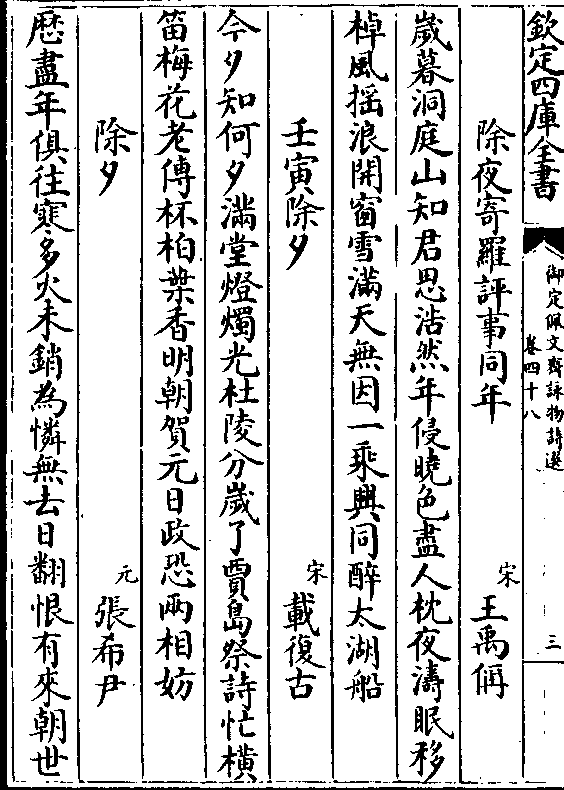 欽定四庫全書
御定佩文齋詠物詩選
卷四十八
三
除夜寄羅評事同年
宋
王禹偁
歲暮洞庭山知君思浩然年侵曉色盡人枕夜濤眠移
棹風揺浪開窗雪滿天無因一乘興同醉太湖船
壬寅除夕
宋
載復古
今夕知何夕滿堂燈燭光杜陵分歲了賈島祭詩忙橫
笛梅花老傳杯柏葉香明朝賀元日政恐兩相妨
除夕
元
張希尹
歴盡年俱往寒多火未銷為憐無去日翻恨有來朝世